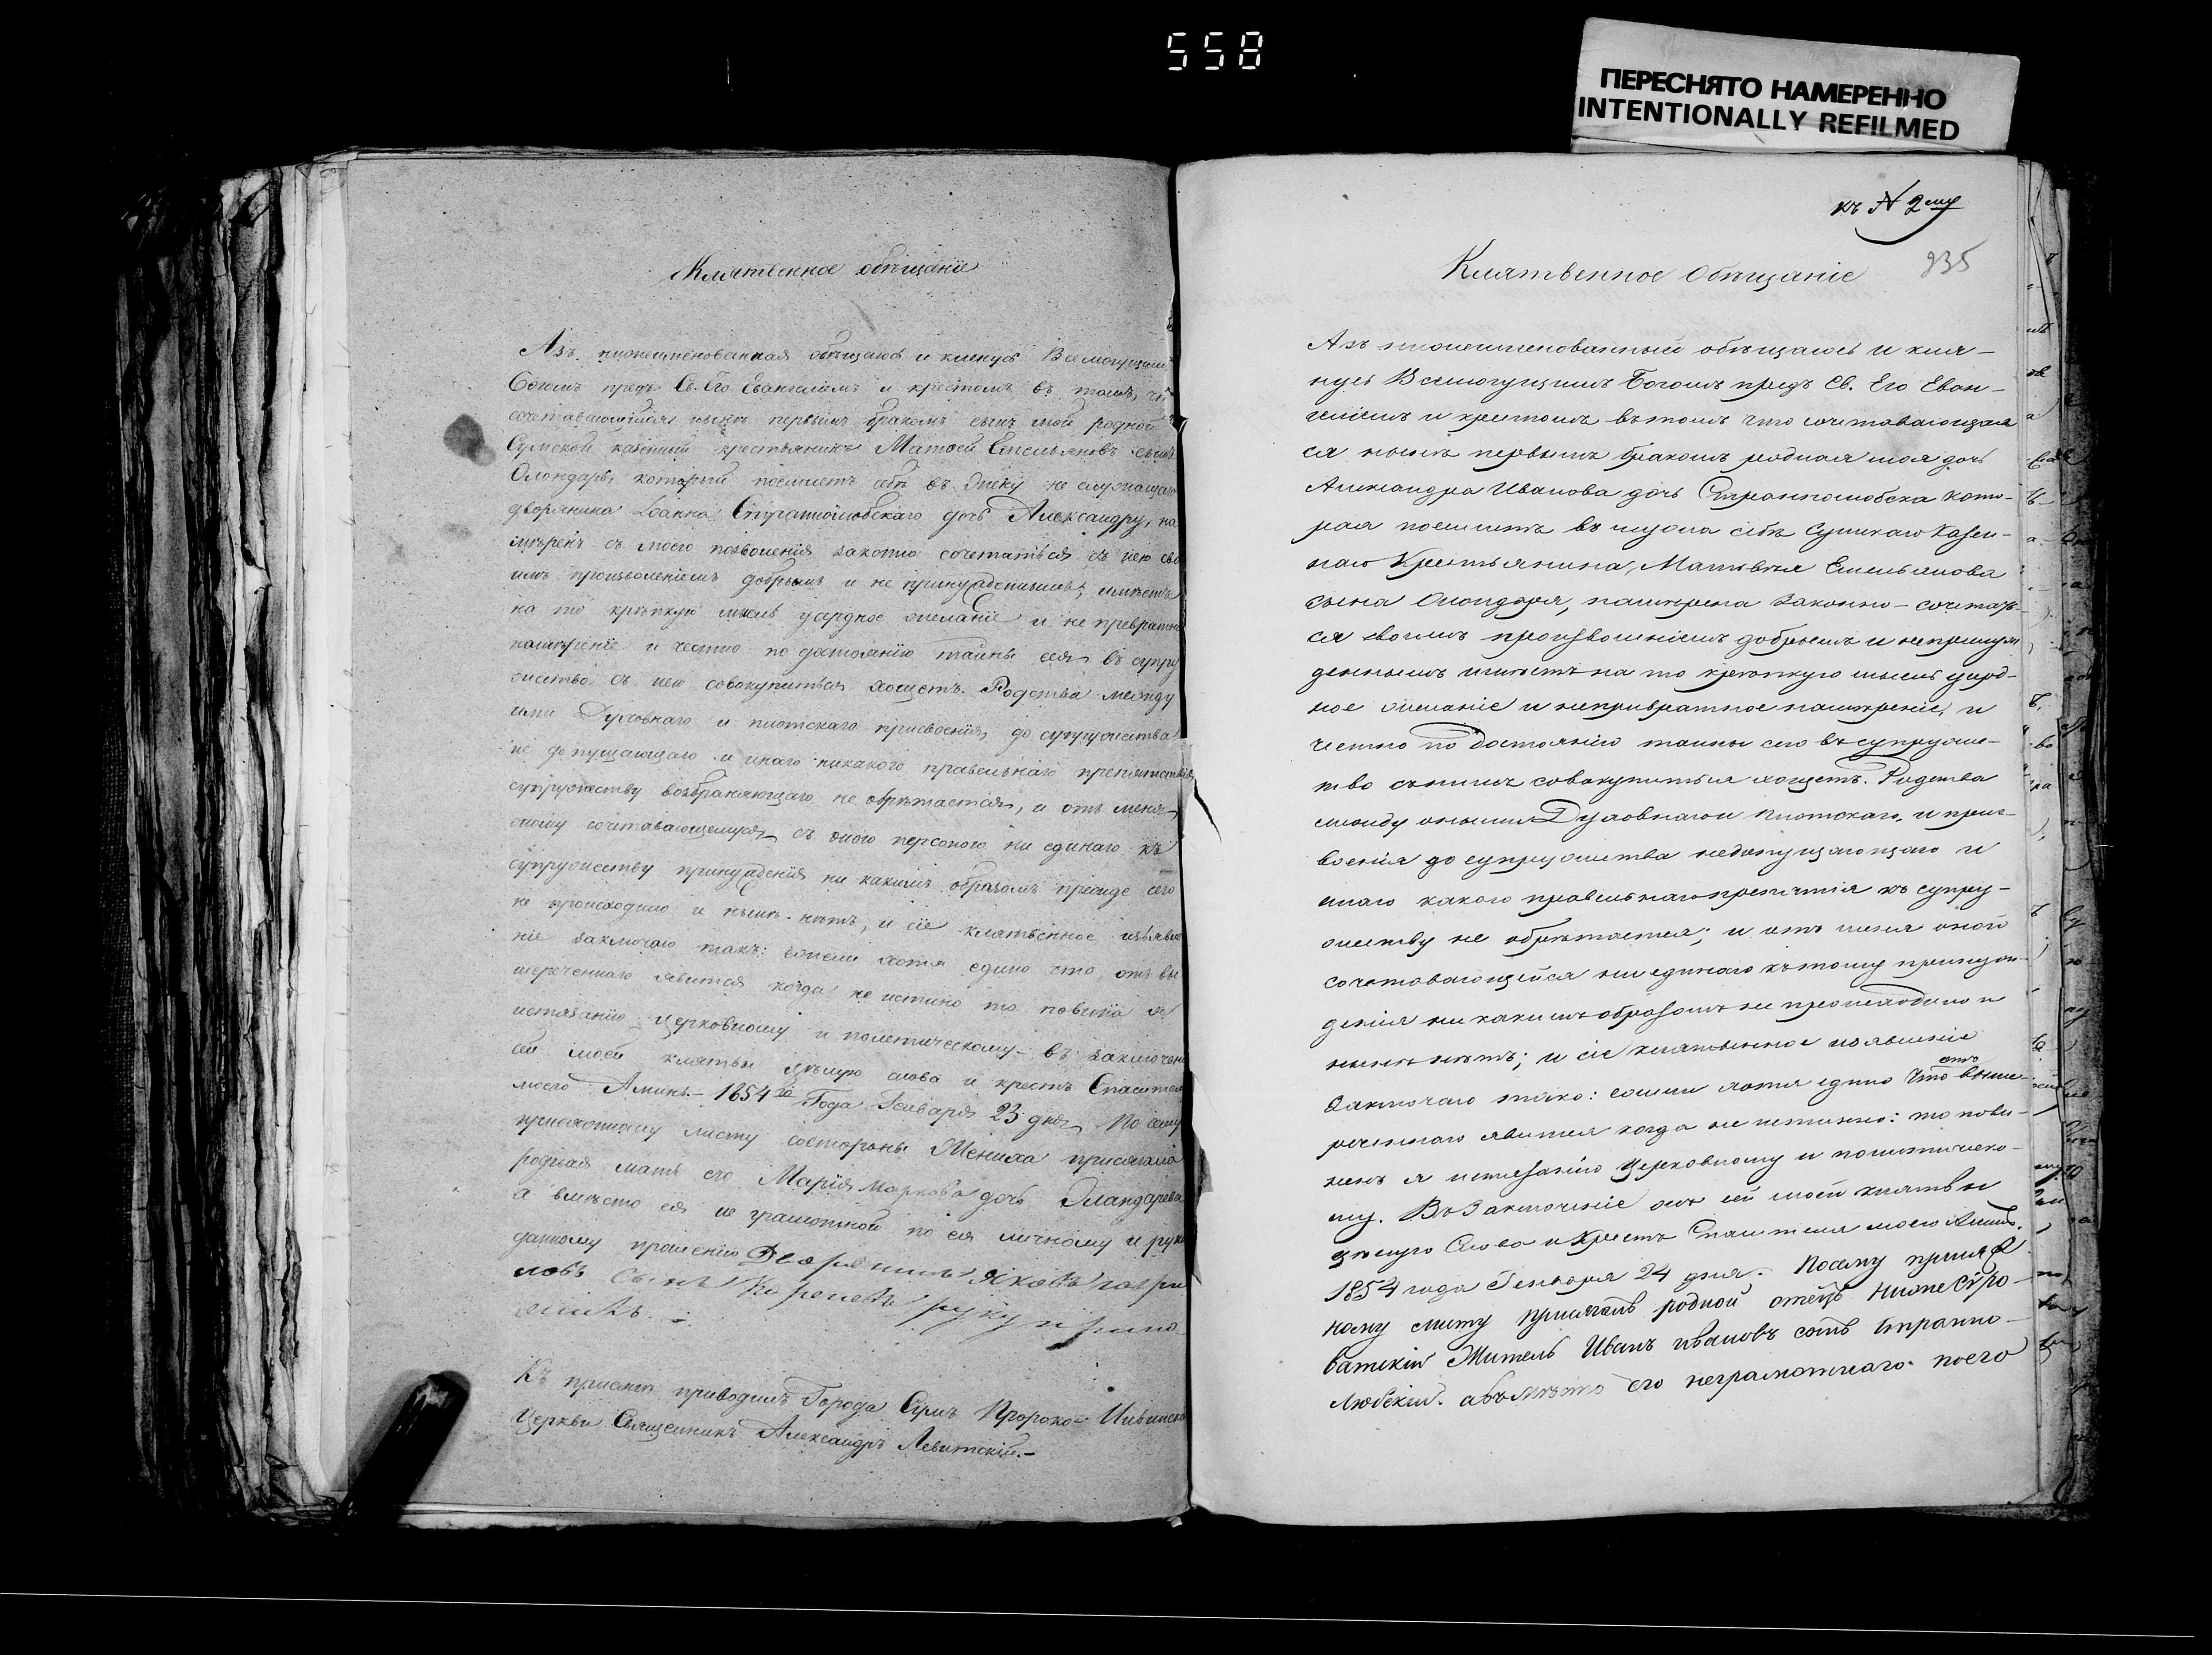 558
ПЕРЕСНЯТО НАМЕРЕННО
INTENTIONALLY REFILMED
Клятвенное обѣщаніе
Азъ нижеименованная обѣщаюсь и кленусь Всемогущимъ
Богомъ предъ Св. Его Евангеліемъ и крестомъ въ томъ, что
сочетавающійся нынѣ первымъ бракомъ сынъ мой родной
Сумской казенный крестьянинъ Матѳей Емельяновъ сынъ
Олондарь, который поемлетъ себѣ въ жену не служащаго
дворянина Іоанна Страннолюбскаго дочь Александру, на
мѣренъ съ моего позволенія законно сочетаться съ нею сво
имъ произволеніемъ добрымъ и не принужденнымъ, имѣетъ
на то крѣпкую мысль усердное желаніе и не превратное
намѣреніе и честно по достоянію тайны сея въ супру
жество съ нею совокупиться хощетъ. Родства между
ими Духовнаго и плотскаго присвоенія, до супружества
не допущающаго и инаго никакого правильнаго препятствія
супружеству возбраняющаго не обрѣтается, и отъ меня
оному сочетавающемуся съ оною персоною ни единаго къ
супружеству принужденія ни какимъ образомъ прежде сего
не происходило и нынѣ нѣтъ, и сіе клятвенное изъявле
ніе заключаю такъ: ежели хотя едино что отъ вы
шереченнаго явится когда не истино то повина я
истязанію церковному и политическому въ заключеніи
сей моей клятвы цѣлую слова и крестъ Спасителя
моего Аминь.- 1854го Года Генваря 23 дня, По сему
присяжному листу состороны Жениха присягала
родная мать его Марія Маркова дочь Оландарева
а вмѣсто ея не грамотной по ея личному и руко
данному прошенію Дворянинъ Яковъ Гаври
ловъ Сынъ руку прило
жилъ. -
Къ присягѣ приводилъ Города Сумъ Пророко-Ильинской
Церкви Священникъ Александръ Левитскій.-
къ № 2му
935
Клятвенное Обѣщаніе
Азъ нижеименованный обѣщаюсь и кля-
нусь Всемогущимъ Богомъ предъ Св. Его Еван-
геліемъ и крестомъ въ томъ что сочетавающая
ся нынѣ первымъ бракомъ родная моя дочь
Александра Иванова дочь Страннолюбска кото-
рая поемлетъ въ мужа себѣ Сумскаго Казен-
наго Крестьянина, Матвѣя Емельянова
сына Олондаря, намѣрена Законно-сочетать-
ся своимъ произволеніемъ добрымъ и непринуж
деннымъ имѣетъ на то крѣпкую мысль усерд-
ное желаніе и непривратное намѣреніе, и
честно по достоянію тайны сего въ супруже-
тво съ нимъ совокупиться хощетъ. Родства
между оными Духовнаго и плотскаго, и прис-
военія до супружества недопущающаго и
инаго какого правильнаго препятія къ супру-
жеству не обрѣтается; и отъ меня оной
сочетовающейся ни единаго къ тому принуж-
денія ни какимъ образомъ не происходило и
нынѣ нѣтъ; и сіе клятвенное изявленіе
Заключаю тако: ежели хотя едино что отъ выше-
реченнаго явится когда не истинно: то пови-
ненъ я истезанію Церковному и политическо-
му. Въ Заключеніе же сей моей клятвы
цѣлую Слова и Крестъ Спасителя моего Аминь.
1854 года Генваря 24 дня. Посему присяж
ному листу присягалъ родной отецъ Нижнесыро-
ватскій Житель Иванъ ивановъ сынъ Странно-
любскій. авъмѣсто его неграмотнаго поего